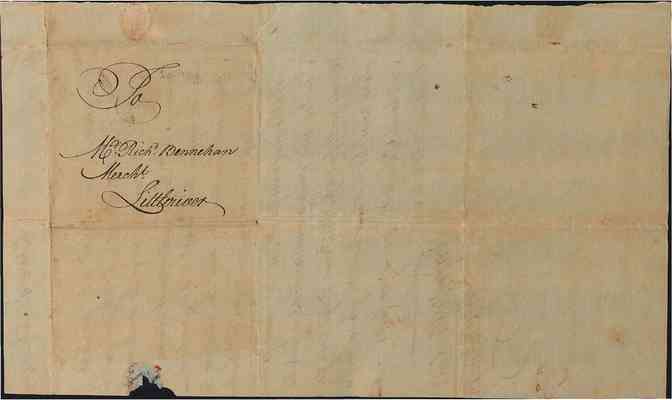 To
Mr. Richd. Bennehan
Mercht.
Littleriver